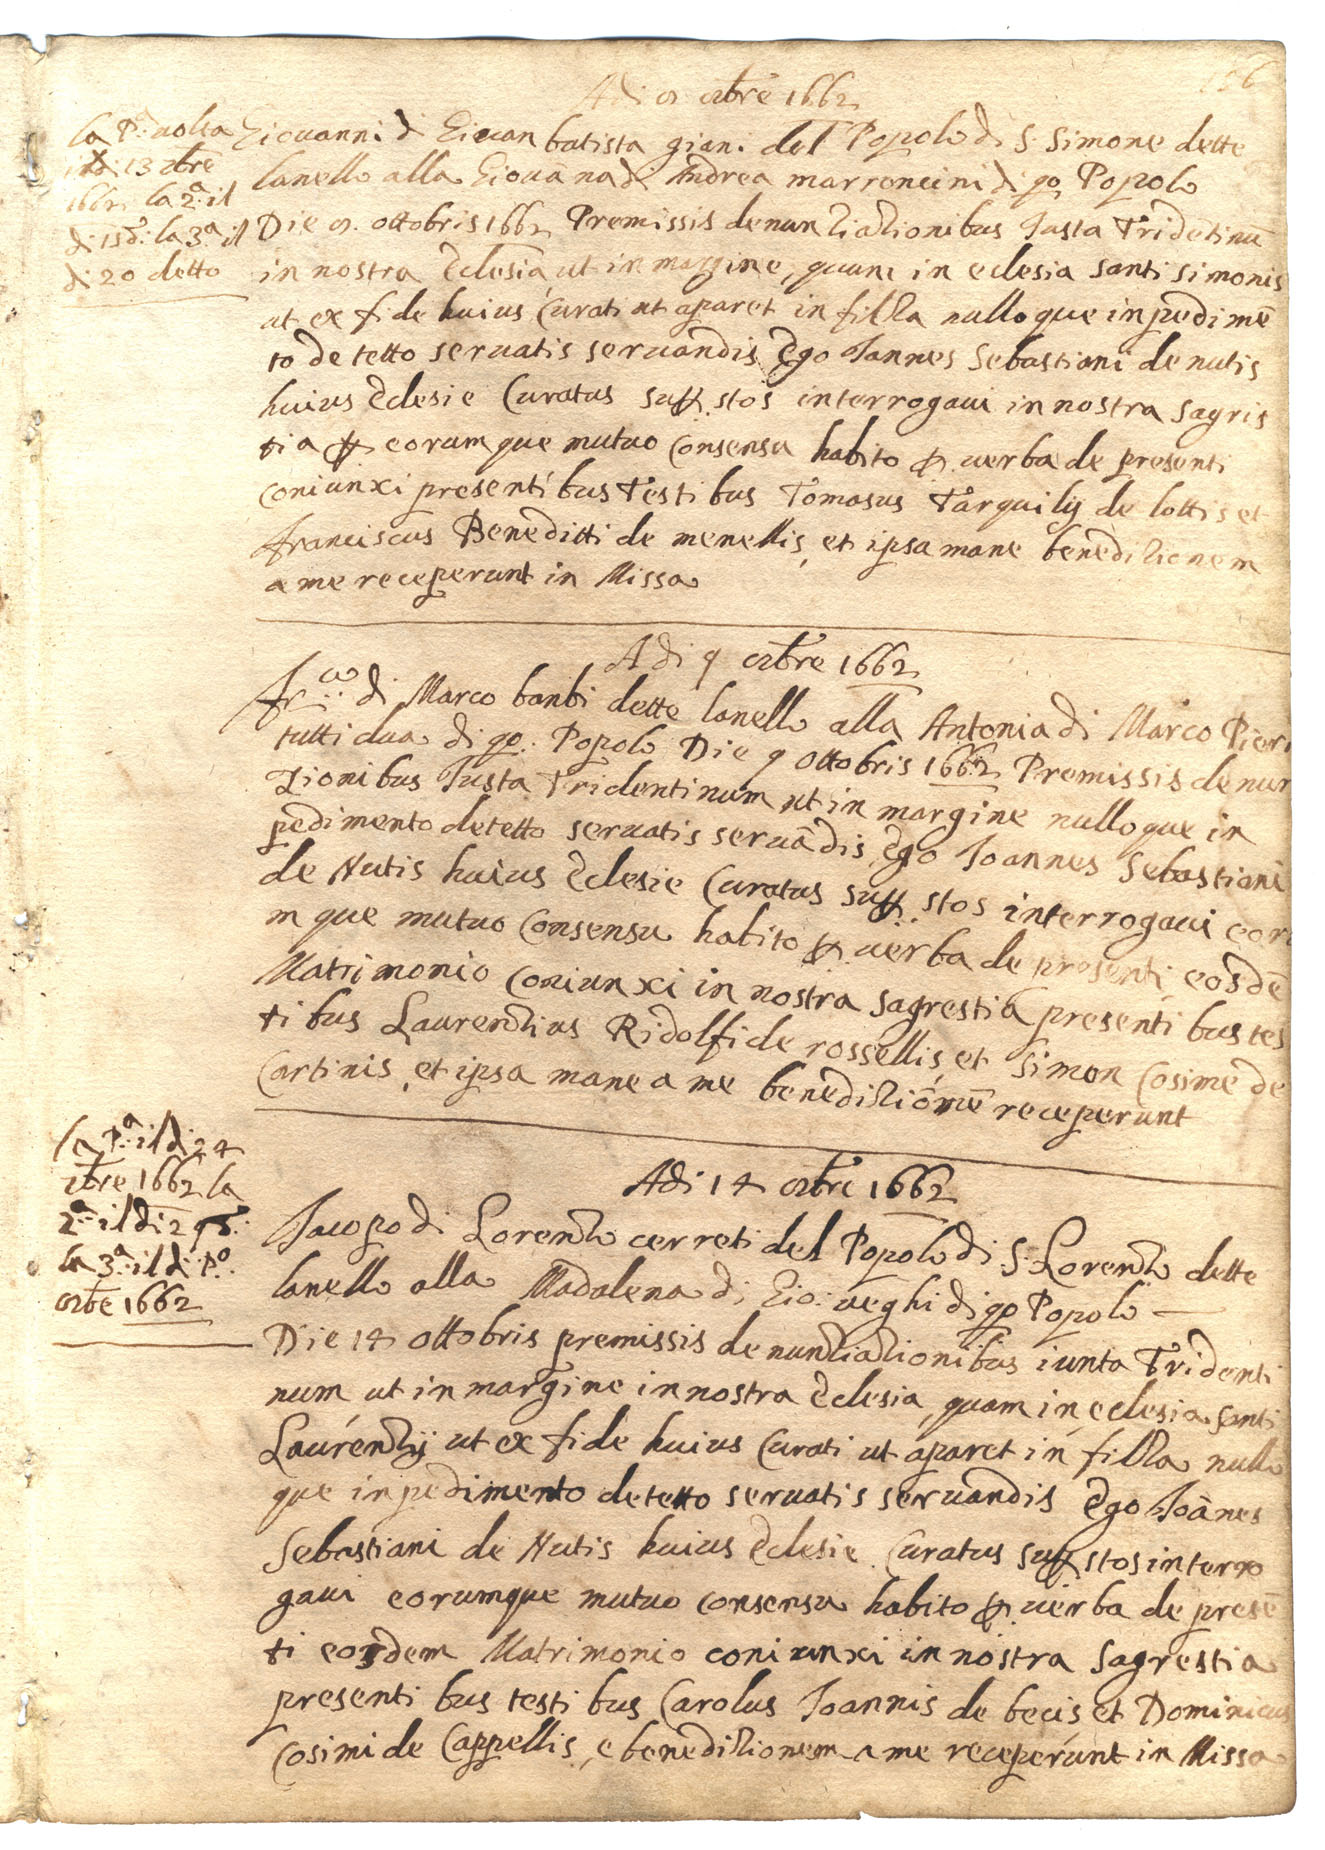 156
Adi 9 8bre 1662
la Pa. uolta
il di 13 7bre
1662 la 2a il
di 15 do. la 3a il
di 20 detto
Giouanni di Giouan batista gian. del Popolo di S. Simone dette
lanello alla Giouāna di Andrea marroncini di qo Popolo
Die 9. ottobris 1662 Premissis denuntiationibus Justa Tridētinū
in nostra Eclesia ut in margine, quam in eclesia santi simonis
ut ex fide huius Curati ut aparet in filza nulloque inpedimē
to detetto seruatis seruandis Ego Joannes Sebastiani de nutis
huius Eclesie Curatus supp.stos interrogaui in nostra sagris
tia & eorumque mutuo Consensu habito p. uerba de presenti
coniunxi presentibus Testibus Tomasus Tarquilij de lottis et
franciscus Beneditti de menellis, et ipsa mane beneditionem
a me receperunt in Missa
Adi 9 8bre 1662
Fr.co di Marco banbi dette lanello alla Antonia di Marco Pieri
tutti dua di qo. Popolo Die 9 ottobris 1662 Premissis denun
tionibus Justa Tridentinum ut in margine nulloque in
pedimento detetto seruatis seruādis Ego Joannes Sebastiani
de Nutis huius Eclesie Curatus supp.stos interrogaui eoru
m que mutuo Consensu habito p. uerba de presenti eosdē
Matrimonio coniunxi in nostra sagrestia presentibus tes
tibus Laurentius Ridolfi de rossellis, et Simon Cosime de
Cartinis, et ipsa mane a me beneditionē receperunt
la Pa. il di 24
7bre 1662 la
2a. il di 29 d.
la 3a. il di Po.
8bre 1662
Adi 14 8bre 1662
Jacopo di Lorenzo cerreti del Popolo di S. Lorenzo dette
lanello alla Madalena di Gio: ueghi di qo Popolo
Die 14 ottobris premissis denuntiationibus iunta Tridenti
num ut in margine in nostra Eclesia, quam in eclesia Santi
Laurentij ut ex fide huius Curati ut aparet in filza nullo
que inpedimento detetto seruatis seruandis Ego Joānes
Sebastiani de Nutis huius Eclesie Curatus supp.stos interro
gaui eorumque mutuo consensu habito p. uerba de presē
ti eosdem Matrimonio coniunxi in nostra sagrestia
presentibus testibus Carolus Joannis de becis et Dominicus
Cosimi de Cappellis, e beneditionem a me receperunt in Missa